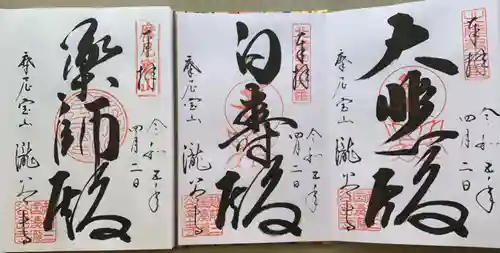 奉拝
令和五年
四月二日
大照殿
摩尼宝山
瀧谷寺
奉拝
令和五年
四月二日
白寿殿
摩尼宝山
瀧谷寺
奉拝
令和五年
四月二日
薬師殿
摩尼宝山
瀧谷寺